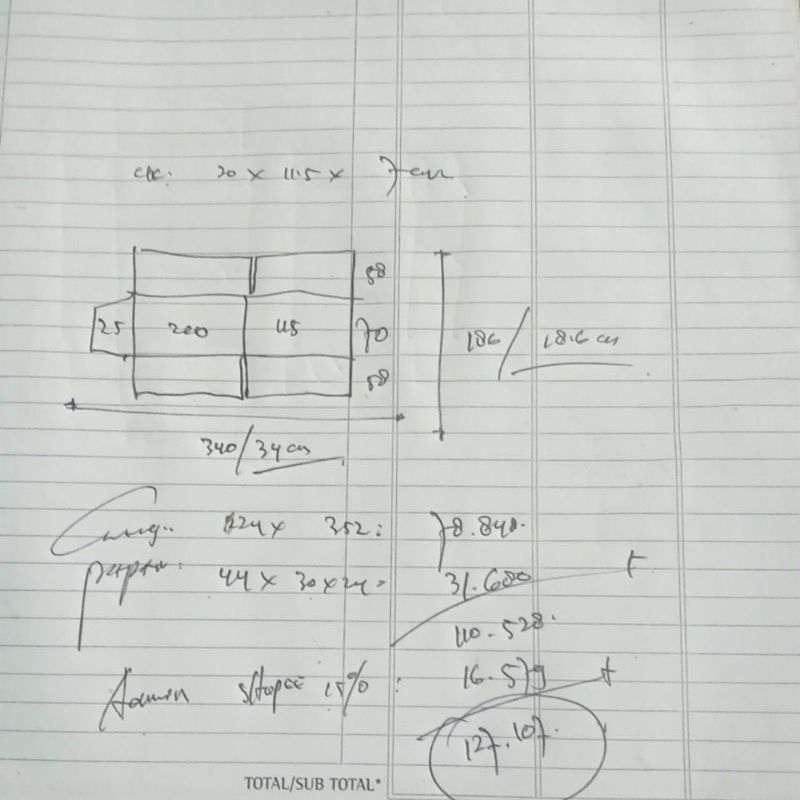 uk: 20 x 11.5 x 7 cm
58
25 200 115 70
58
186 / 18.6 cm
340 / 34 cm
224 x 352 = 78.848.
44 x 30 x 24 = 31.680 +
110.528.
Admin Shopee 15% : 16.579 +
127.107.
TOTAL/SUB TOTAL*